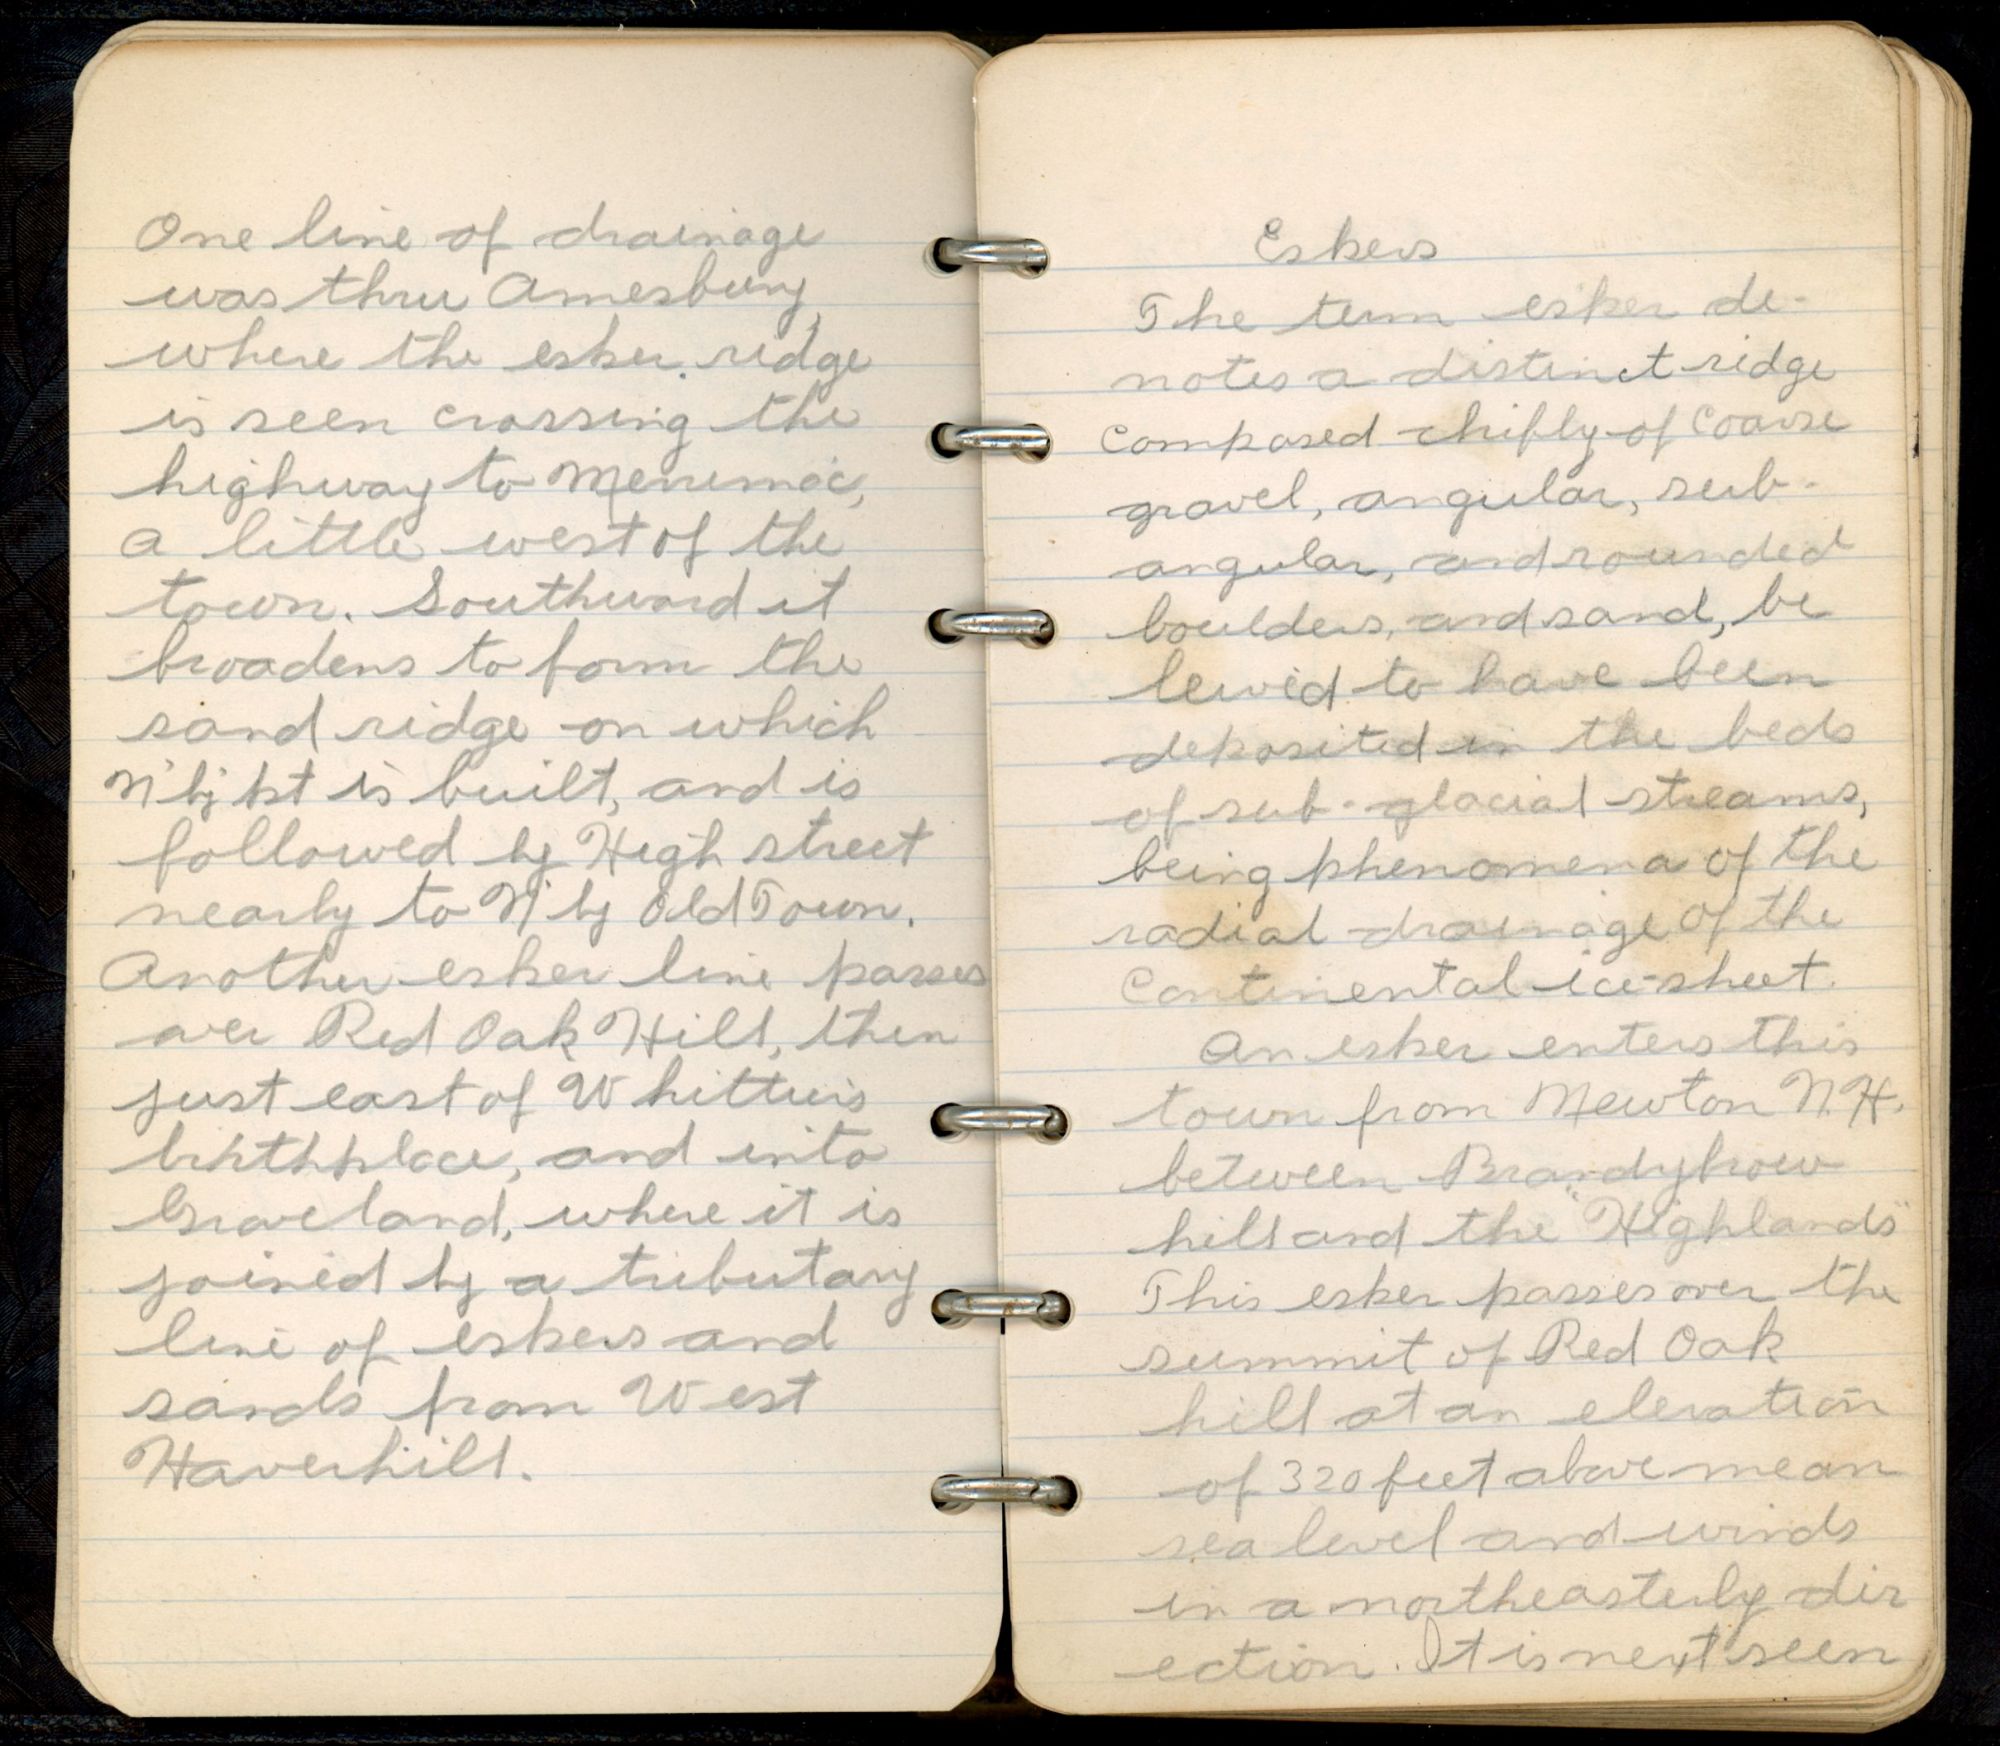 One line of drainage
was thru Amesbury,
where the esker ridge
is seen crossing the
highway to Merrimac,
a little west of the
town. Southward it
broadens to form the
sand ridge on which
N'by'pt is built, and is
followed by High street
nearly to N'by Old Town.
Another esker line passes
over Red Oak Hill, then
just east of Whittier's
birthplace, and into
Groveland, where it is
joined by a tributary
line of eskers and
sands from West
Haverhill.
Eskers
The term esker de-
notes a distinct ridge
composed chifly of coarse
gravel, angular, sub-
angular, and rounded
boulders, and sand, be
leived to have been
deposited in the beds
of sub-glacial streams,
being phenomena of the
radial drainage of the
Continental ice-sheet.
An esker enters this
town from Newton N.H.
between Brandybrow
hill and the "Highlands"
This esker passes over the
summit of Red Oak
hill at an elevation
of 320 feet above mean
sea level and winds
in a northeasterly dir
ection. It is next seen